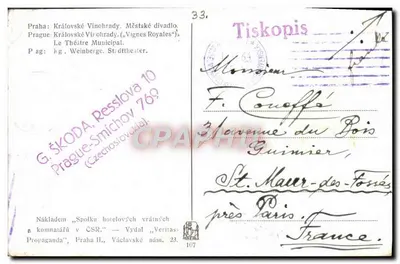 Praha: Královské Vinohrady. Městské divadlo.
Prague: Královské Vinohrady. („Vignes Royales“),
Le Théâtre Municipal.
Prag: kg. Weinberge. Stadttheater.
33.
Tiskopis
G. ŠKODA, Resslova 10
Prague-Smíchov 769
(Czechoslovakia)
Monsieur
F. Coneffé
31 avenue du Bois
Guimier,
St. Maur-des-Fossés
près Paris.
France.
Nákladem „Spolku hotelových vrátných
a komisařů v ČSR.“ — Vydal „Veritas-
Propaganda“, Praha II., Václavské nám. 23.
107
CPARAMA